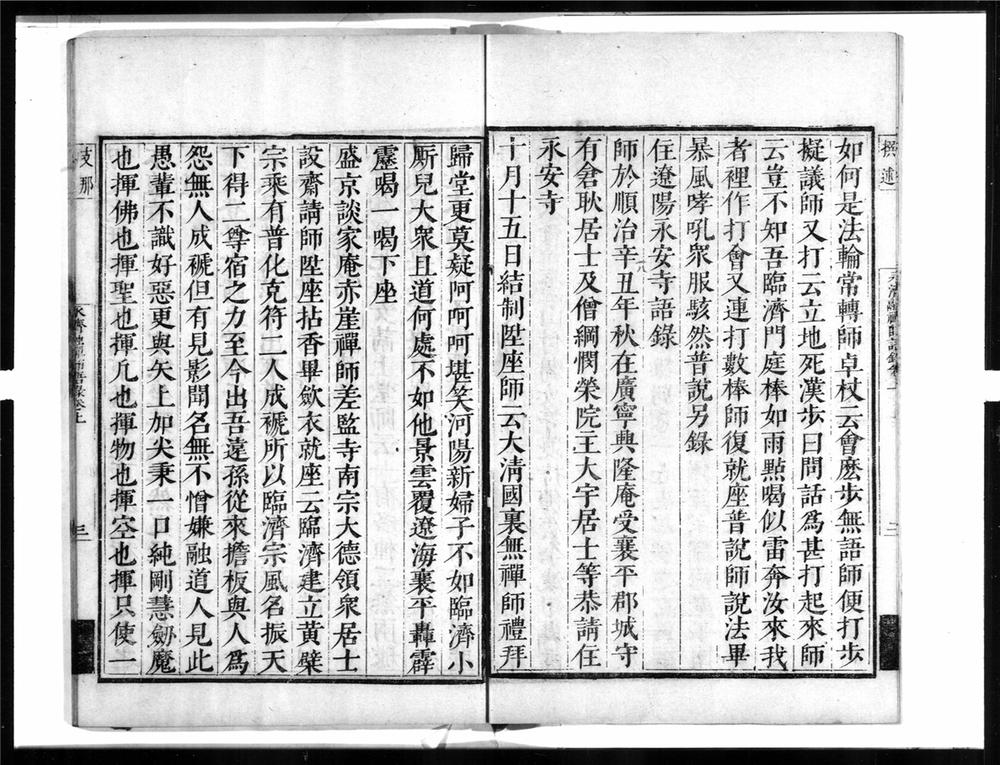 撰述
如何是法輪常轉師卓杖云會麽步無語師便打步
擬議師又打云立地死漢步曰問話為甚打起來師
云豈不知吾臨濟門庭棒如雨點喝似雷奔汝來我
者裡作打會又連打數棒師復就座普說師說法畢
暴風哮吼衆服駭然普說另錄
住遼陽永安寺語錄
師於順治辛丑年秋八在廣寧興隆庵受襄平郡城守
有倉耿居士及僧綱憫榮院王大宇居士等恭請住
永安寺
十月十五日結制陞座師云大淸國裏無禪師禮拜
歸堂更莫疑阿呵呵堪笑河陽新婦子不如臨濟小
厮兒大衆且道何處不如他景雲覆遼海襄平轟霹
靂喝一喝下座
盛京談家庵赤崖禪師差監寺南宗大德領衆居士
設齋請師陞座拈香畢斂衣就座云臨濟建立黃檗
宗乘有普化克符二人成褫所以臨濟宗風名振天
下得二尊宿之力至今出吾遠孫從來擔板與人爲
怨無人成褫但有見影聞名無不憎嫌融道人見此
愚輩不識好惡更與矢上加尖秉一口純剛慧劒魔
也揮佛也揮聖也揮凡也揮物也揮空也揮只使一
支那
三